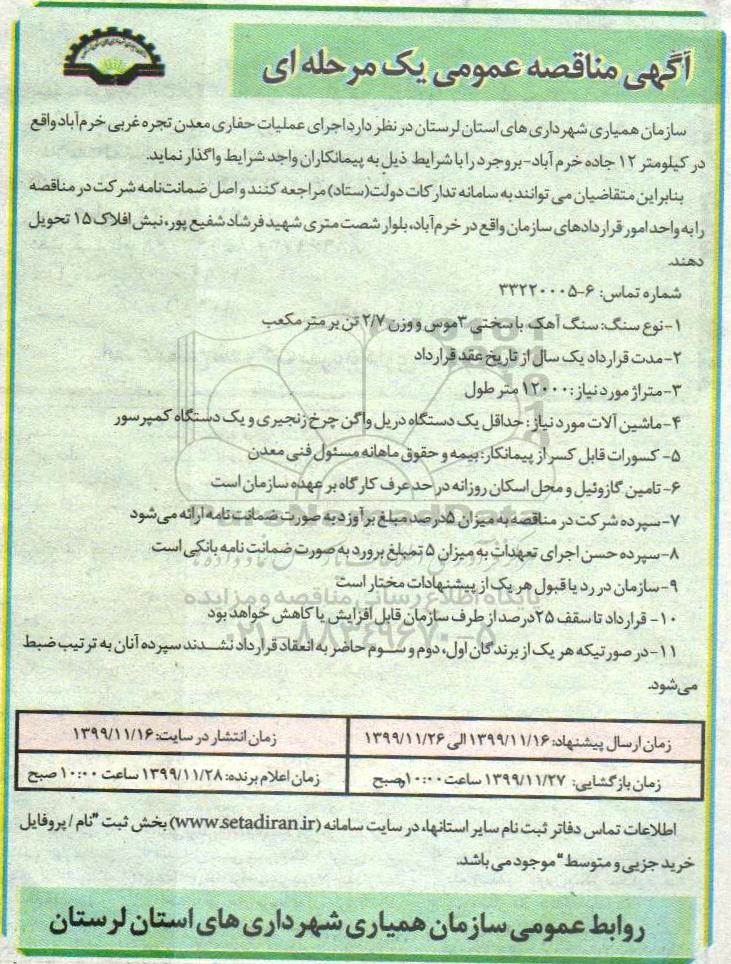 آگهی مناقصه عمومی یک مرحله ای
سازمان همیاری شهرداری های استان لرستان در نظر دارد اجرای عملیات حفاری معدن تجره غربی خرم آباد واقع
در کیلومتر ۱۲ جاده خرم آباد-بروجرد را با شرایط ذیل به پیمانکاران واجد شرایط واگذار نماید.
بنابراین متقاضیان می توانند به سامانه تدارکات دولت (ستاد) مراجعه کنند و اصل ضمانت‌نامه شرکت در مناقصه
را به واحد امور قراردادهای سازمان واقع در خرم‌آباد، بلوار شصت متری شهید فرشاد شفیع پور، نبش افلاک ۱۵ تحویل
دهند.
شماره تماس: ۶-۳۳۲۲۰۰۰۵
۱-نوع سنگ: سنگ آهک با سختی ۳موس و وزن ۲/۷ تن بر متر مکعب
۲-مدت قرارداد یک سال از تاریخ عقد قرارداد
۳-متراژ مورد نیاز: ۱۲۰۰۰ متر طول
۴-ماشین آلات مورد نیاز: حداقل یک دستگاه دریل واگن چرخ زنجیری و یک دستگاه کمپرسور
۵- کسورات قابل کسر از پیمانکار: بیمه و حقوق ماهانه مسئول فنی معدن
۶-تامین گازوئیل و محل اسکان روزانه در حد عرف کارگاه بر عهده سازمان است
۷-سپرده شرکت در مناقصه به میزان ۵درصد مبلغ برآورد به صورت ضمانت نامه ارائه می‌شود
۸-سپرده حسن اجرای تعهدات به میزان ۵ تمبلغ برورد به صورت ضمانت نامه بانکی است
۹-سازمان در رد یا قبول هر یک از پیشنهادات مختار است
۱۰- قرارداد تا سقف ۲۵درصد از طرف سازمان قابل افزایش یا کاهش خواهد بود
۱۱-در صورتیکه هر یک از برندگان اول، دوم و سوم حاضر به انعقاد قرارداد نشدند سپرده آنان به ترتیب ضبط
می‌شود.
زمان ارسال پیشنهاد: ۱۳۹۹/۱۱/۱۶ الی ۱۳۹۹/۱۱/۲۶ زمان انتشار در سایت: ۱۳۹۹/۱۱/۱۶
زمان بازگشایی: ۱۳۹۹/۱۱/۲۷ ساعت ۱۰:۰۰ صبح زمان اعلام برنده: ۱۳۹۹/۱۱/۲۸ ساعت ۱۰:۰۰ صبح
اطلاعات تماس دفاتر ثبت نام سایر استانها، در سایت سامانه (www.setadiran.ir) بخش ثبت "نام / پروفایل
خرید جزیی و متوسط" موجود می باشد.
روابط عمومی سازمان همیاری شهرداری های استان لرستان
ParsNamadData
پایگاه اطلاع رسانی مناقصه و مزایده
۰۲۱-۸۸۳۴۹۶۷۰-۵